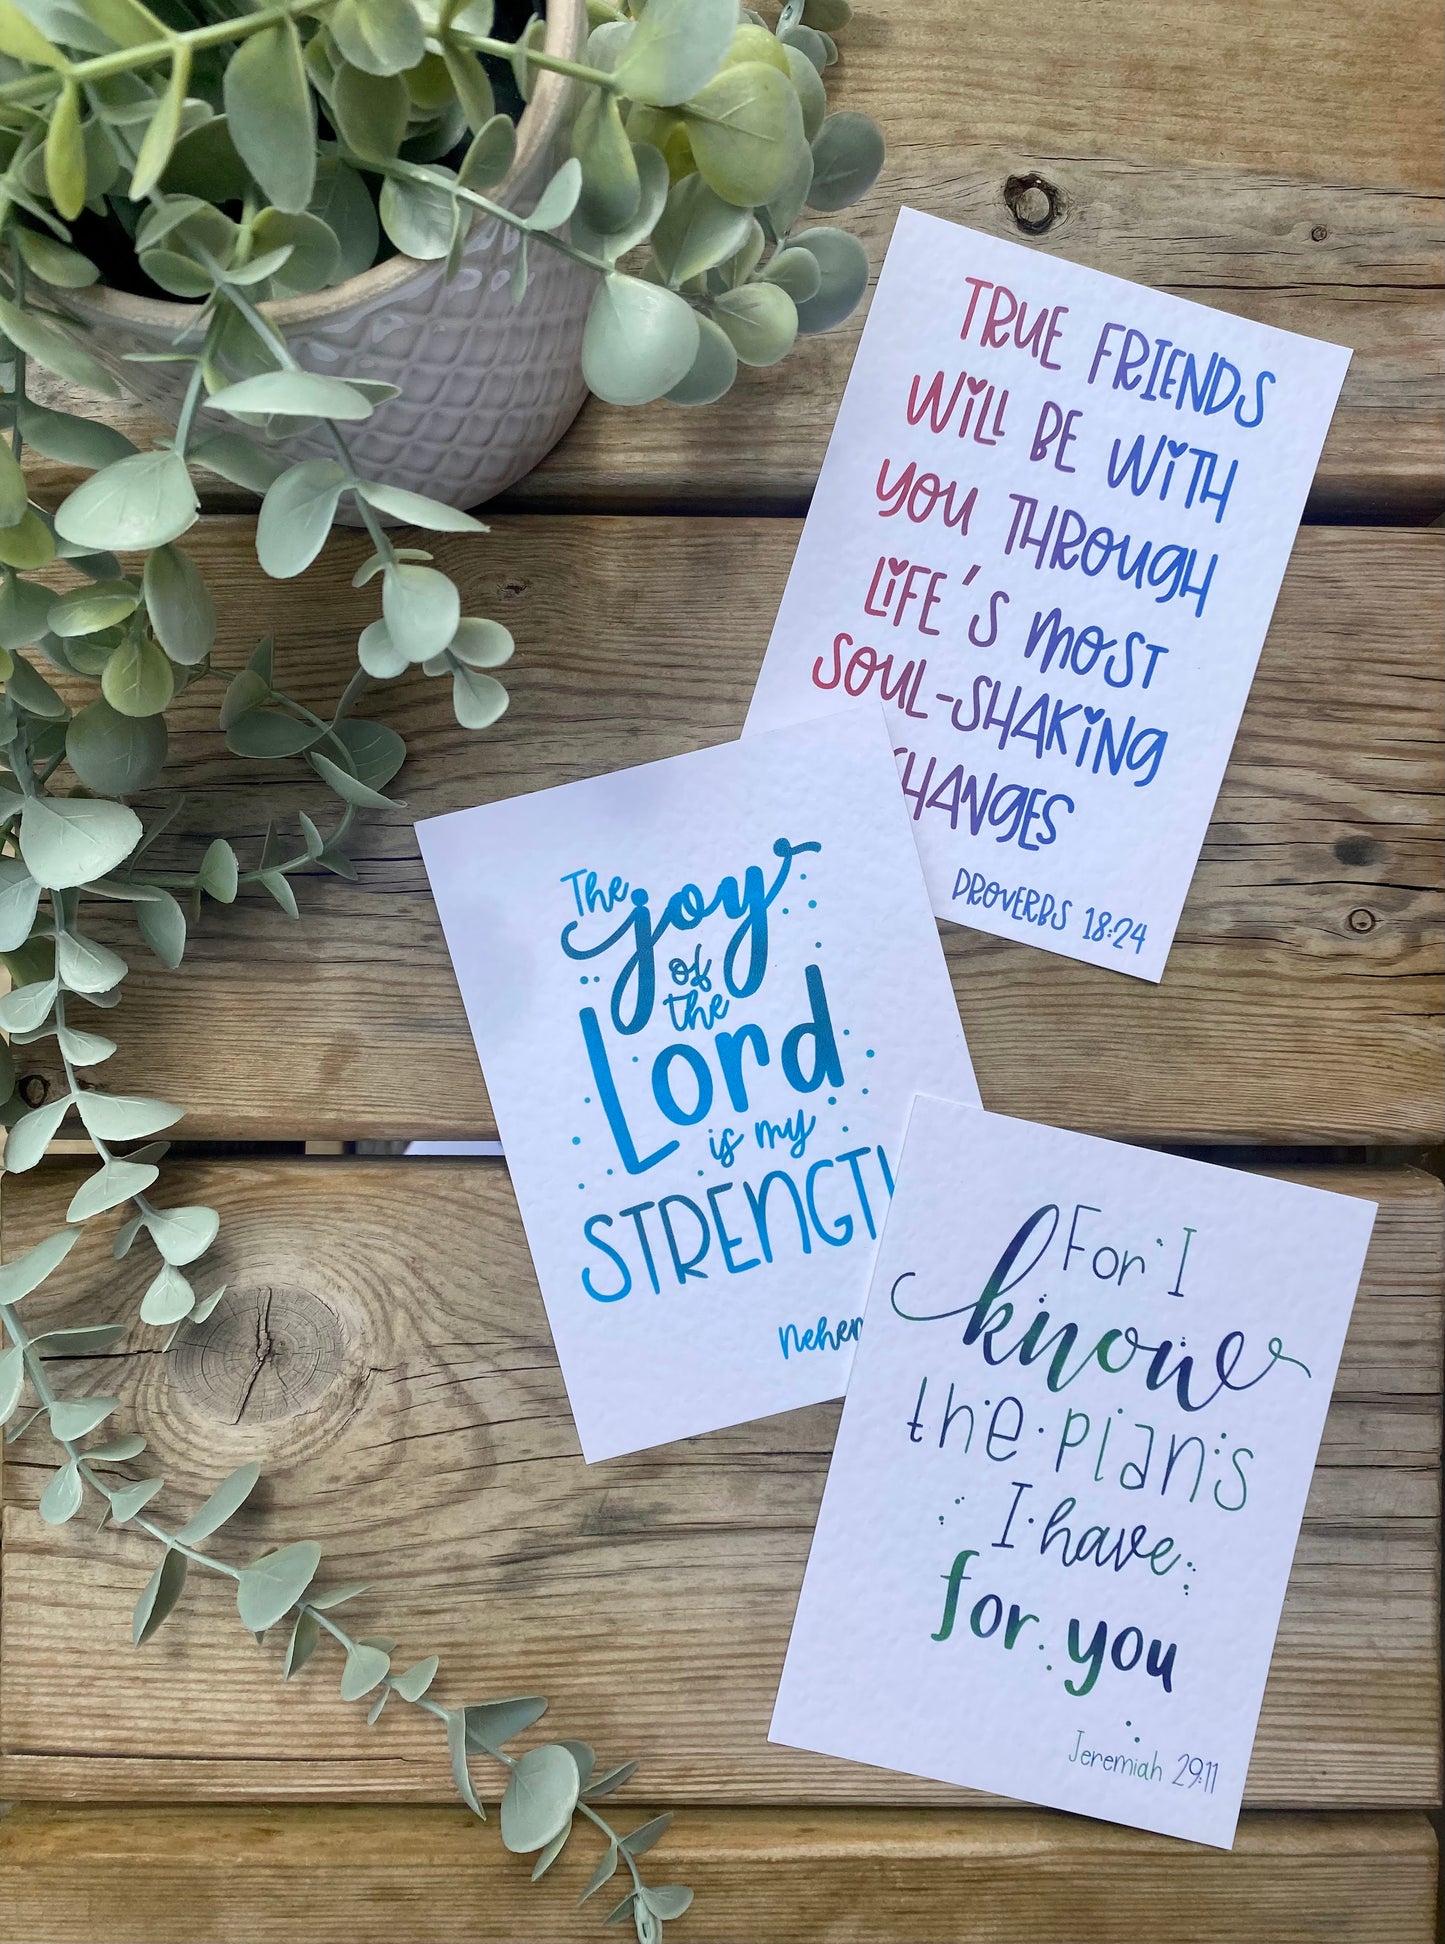 TRUE FRIENDS
WILL BE WITH
YOU THROUGH
LIFE'S MOST
SOUL-SHAKING
CHANGES
PROVERBS 18:24
The joy
of
the
Lord
is my
STRENGTH
For I
know
the plans
I have
for you
Jeremiah 29:11